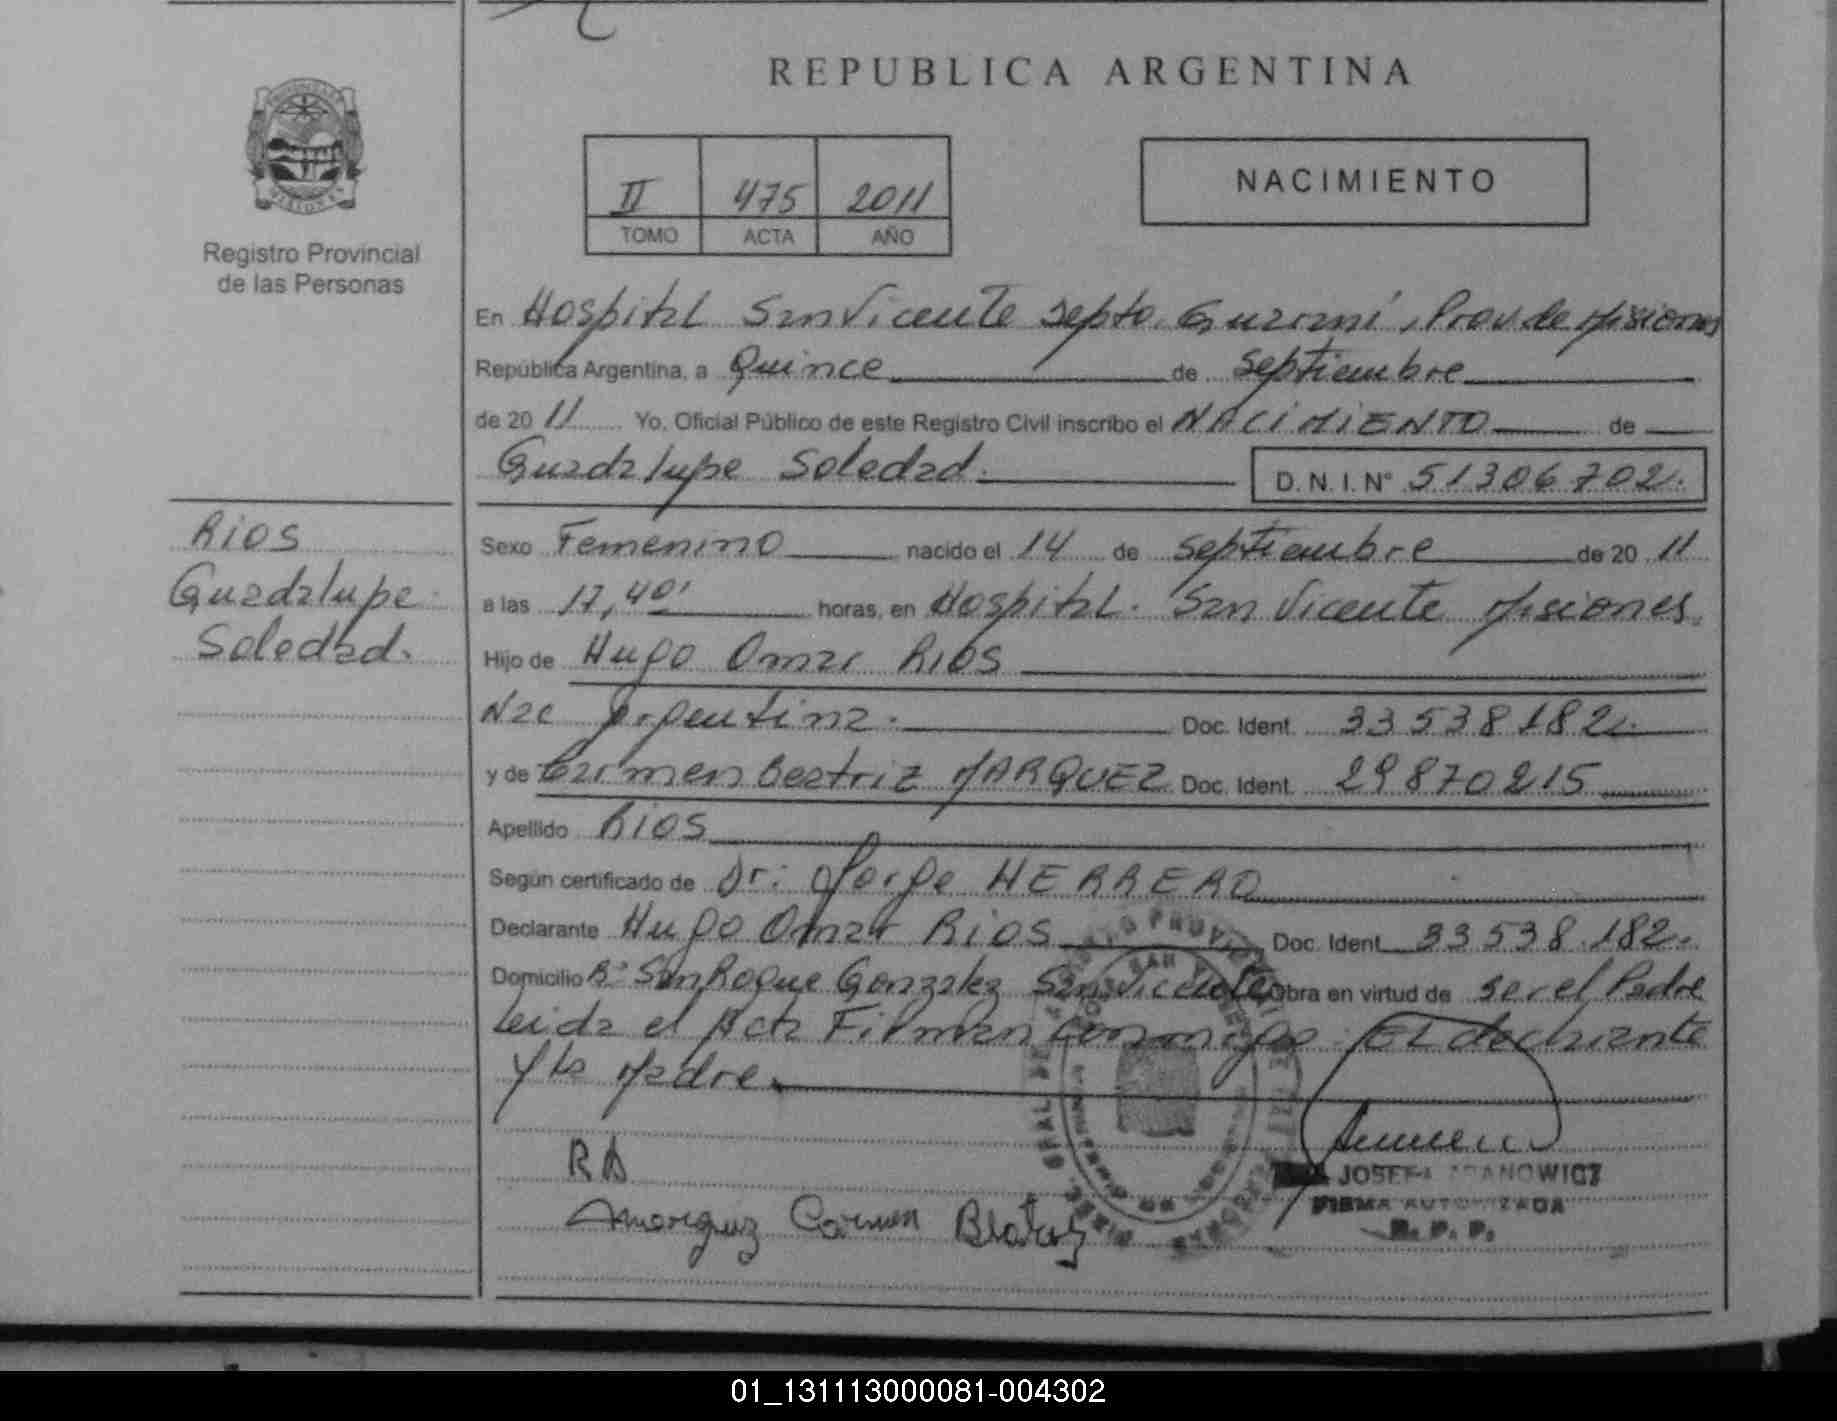 REPUBLICA ARGENTINA
II 475 2011
TOMO ACTA AÑO
NACIMIENTO
Registro Provincial
de las Personas
En Hospital San Vicente Depto. Guaraní, Prov. de Misiones
República Argentina, a Quince de Septiembre
de 2011 Yo, Oficial Público de este Registro Civil inscribo el NACIMIENTO de
Guadalupe Soledad. D.N.I. Nº 51306702.
Rios
Guadalupe
Soledad.
Sexo Femenino nacido el 14 de Septiembre de 2011
a las 17,40' horas, en Hospital. San Vicente Misiones.
Hijo de Hugo Omar Rios
Nac Argentina. Doc. Ident. 33538182.
y de Carmen Beatriz MARQUEZ Doc. Ident. 29870215
Apellido RIOS
Según certificado de Dr: Jorge HERRERO
Declarante Hugo Omar Rios Doc. Ident. 33538.182.
Domicilio Bº San Roque Gonzalez San Vicente Obra en virtud de ser el Padre
Leida el Acta Firman conmigo El declarante
y la Madre.
Marquz Carmen
JOSEFA
FIRMA AUTORIZADA
R. P. P.
01_131113000081-004302